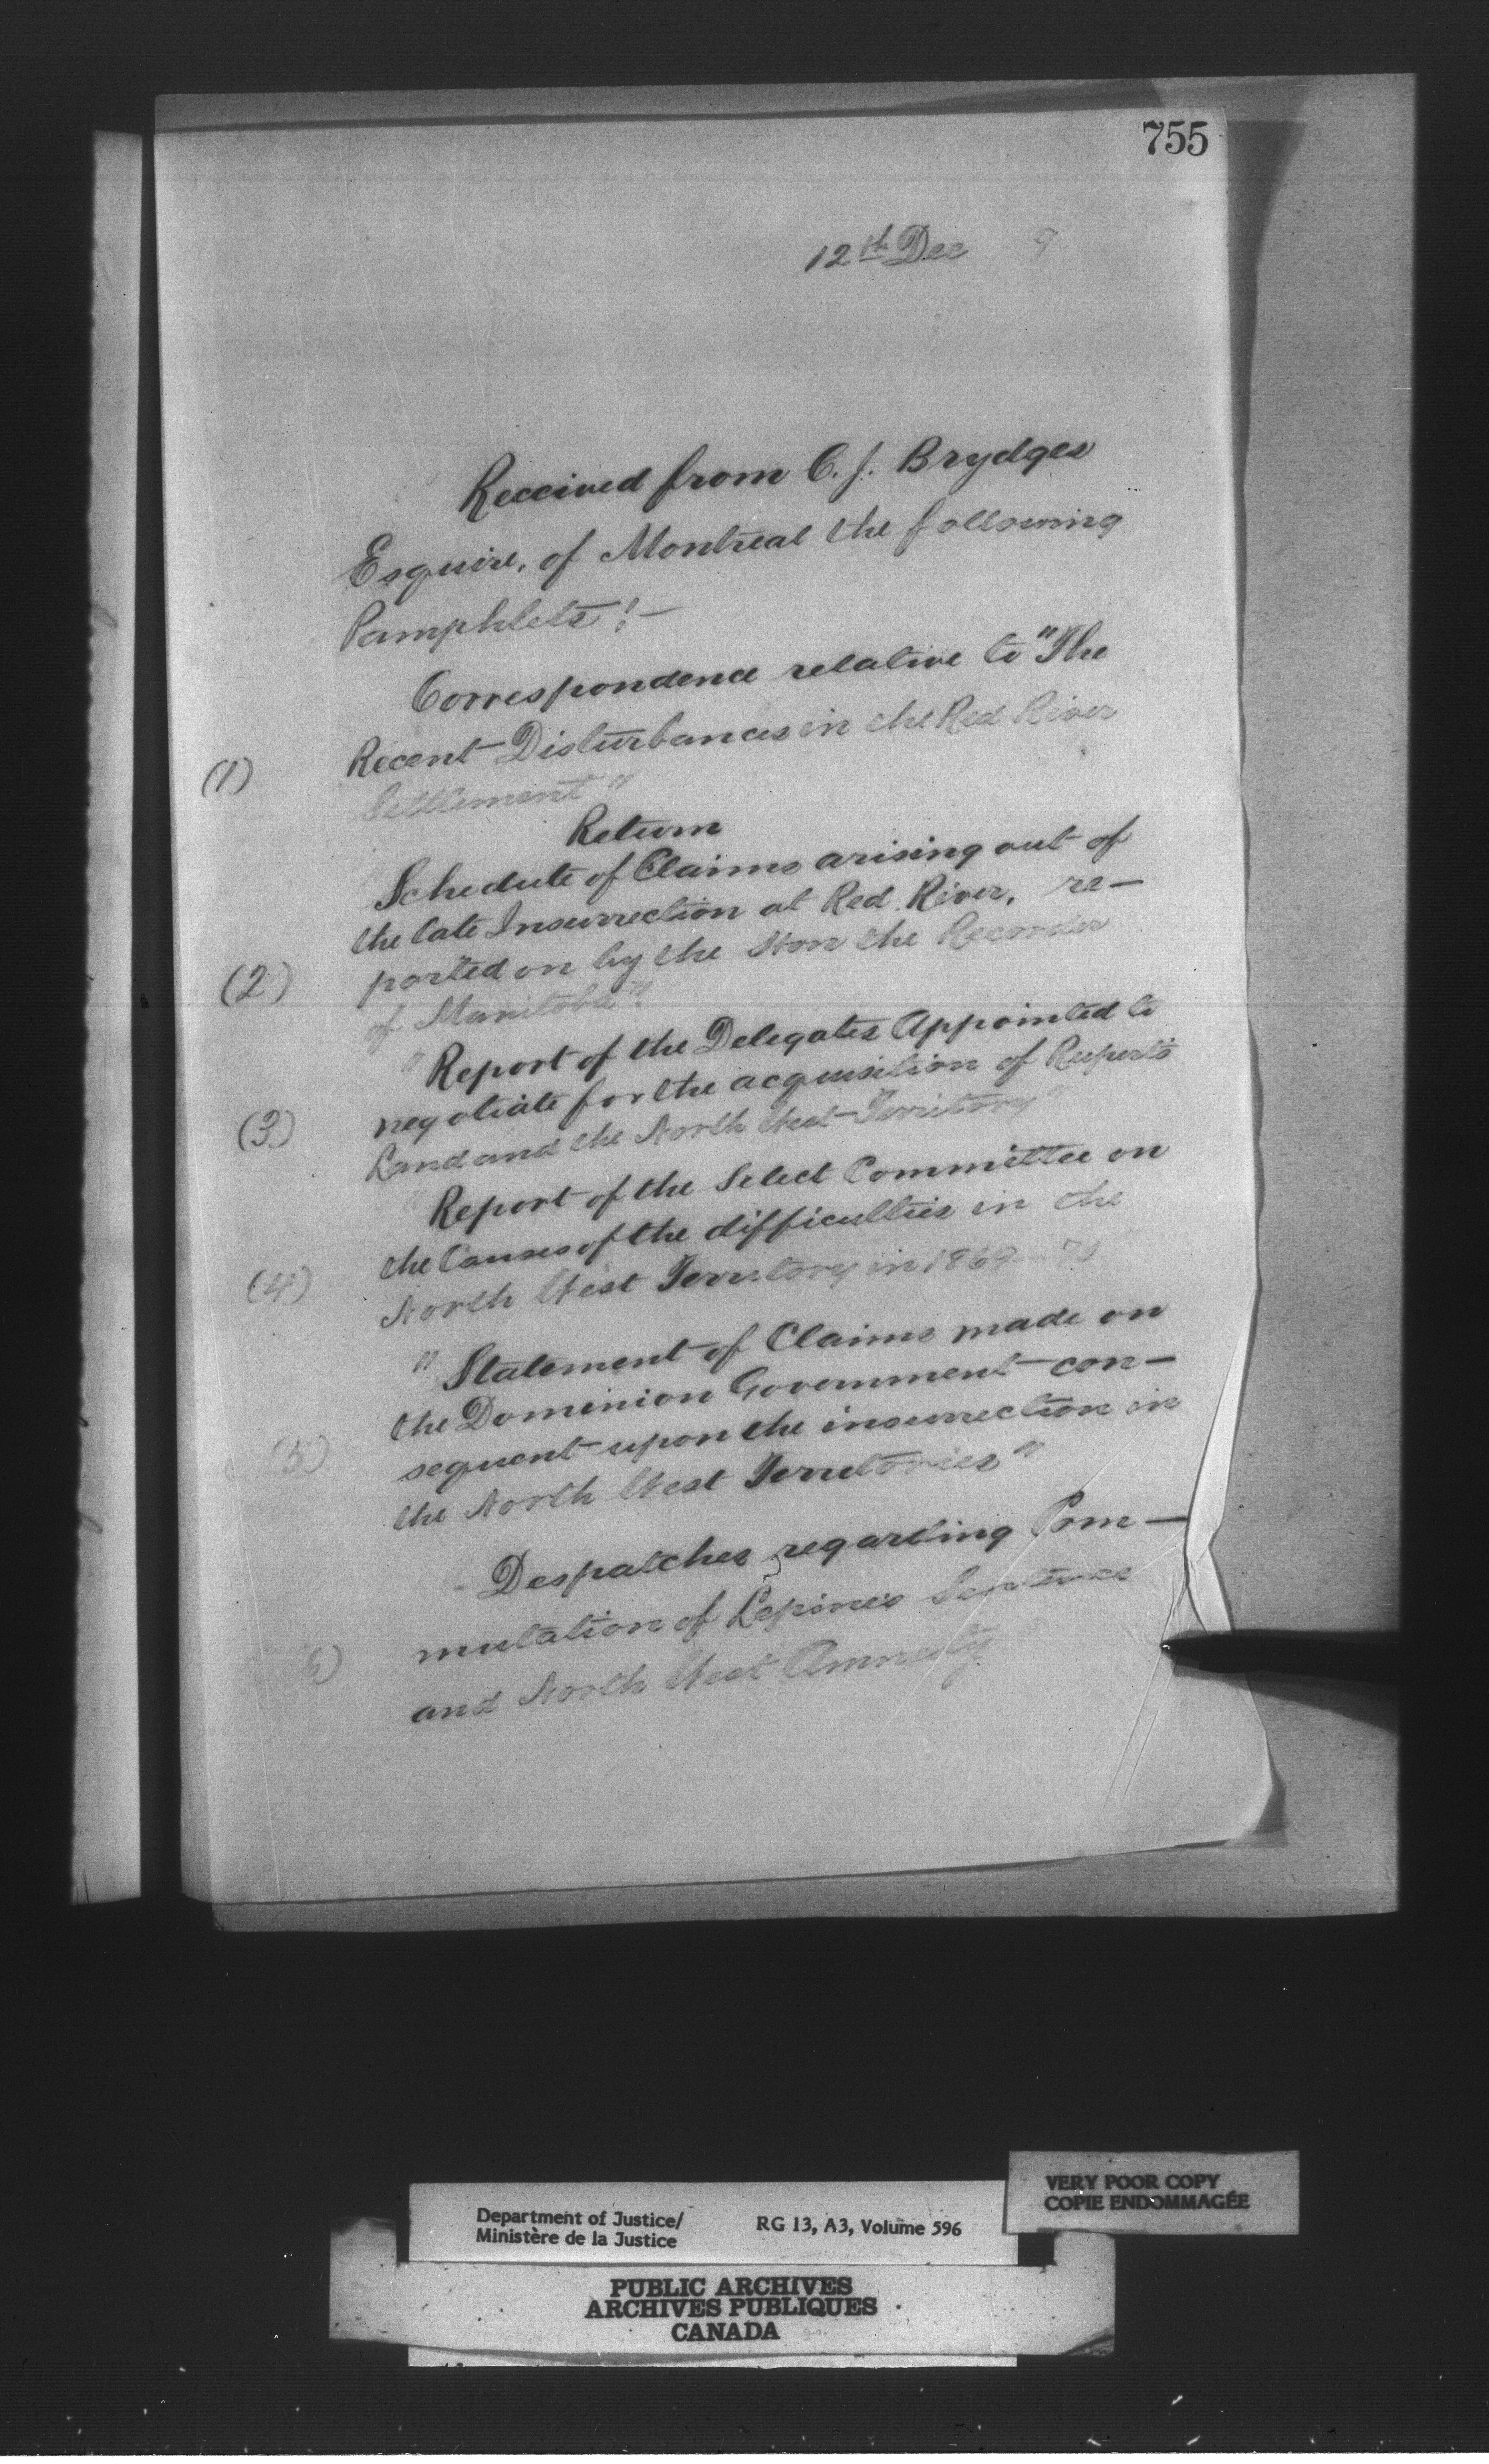 755
12th Dec 9
Received from C. J. Brydges
Esquire, of Montreal the following
Pamphlets:—
Correspondence relative to "The
(1) Recent Disturbances in the Red River
Settlement"
Return
Schedule of Claims arising out of
the late Insurrection at Red River, re-
(2) ported on by the Hon the Recorder
of Manitoba".
"Report of the Delegates Appointed to
(3) negotiate for the acquisition of Ruperts
Land and the North West Territory"
Report of the Select Committee on
the Causes of the difficulties in the
(4) North West Territory in 1869-70
"Statement of Claims made on
the Dominion Government con-
(5) sequent upon the insurrection in
the North West Territories"
Despatches regarding Com-
6) mutation of Lepines Sentence
and North West Amnesty
VERY POOR COPY
COPIE ENDOMMAGÉE
Department of Justice/
Ministère de la Justice
RG 13, A3, Volume 596
PUBLIC ARCHIVES
ARCHIVES PUBLIQUES
CANADA